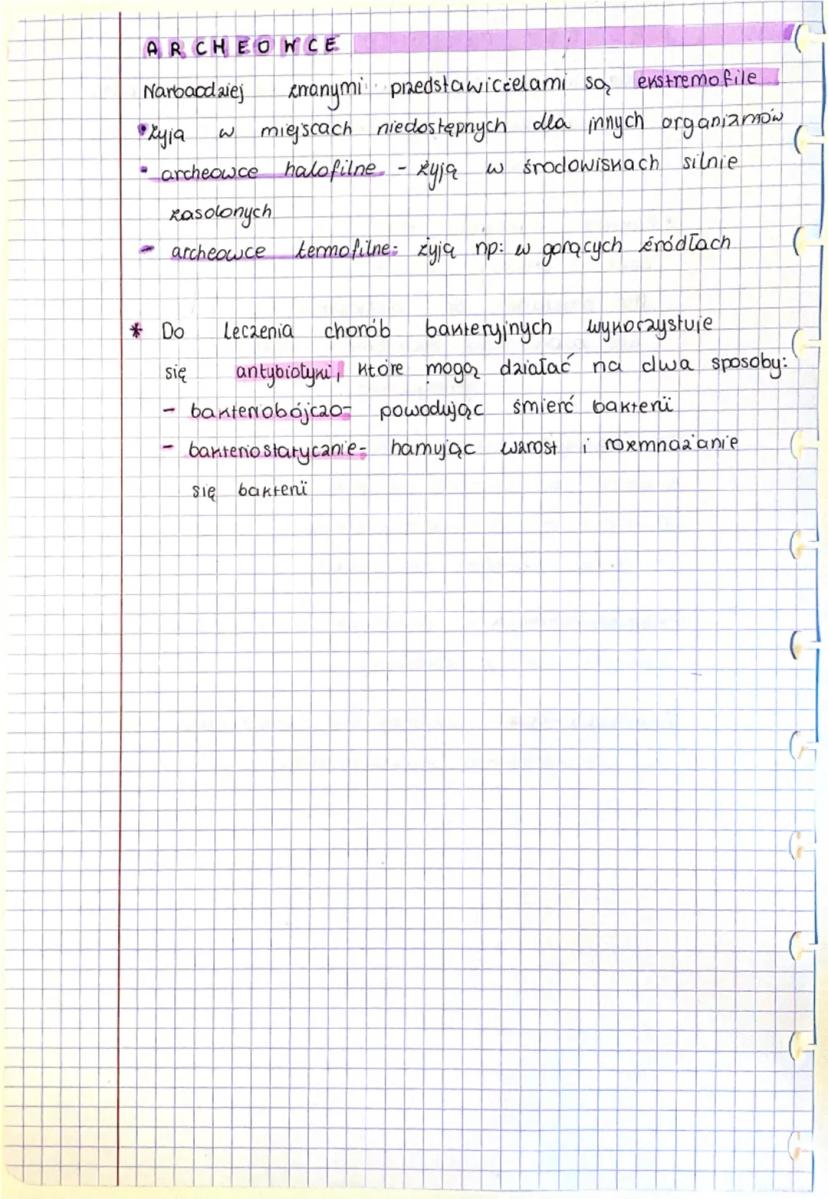 ARCHEOWCE
Narbardziej znanymi przedstawicielami są ekstremofile
• żyją w miejscach niedostępnych dla innych organizmów
• archeowce halofilne - żyją w środowiskach silnie
zasolonych
- archeowce termofilne: żyją np: w gorących źródłach
* Do leczenia chorób bakteryjnych wykorzystuje
się antybiotyki, które mogą działać na dwa sposoby:
- bakteriobójczo- powodując śmierć bakterii
- bakteriostatycznie- hamując wzrost i rozmnażanie
się bakterii